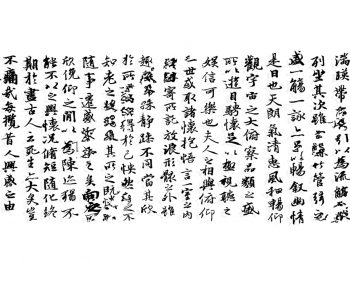 湍暎帶左右引以為流觴曲水
列坐其次雖無絲竹管弦之
盛一觴一詠亦足以暢叙幽情
是日也天朗氣清惠風和暢仰
觀宇宙之大俯察品類之盛
所以遊目騁懷足以極視聽之
娛信可樂也夫人之相與俯仰
一世或取諸懷抱悟言一室之內
或因寄所託放浪形骸之外雖
趣舍萬殊靜躁不同當其欣
於所遇暫得於己怏然自足不
知老之將至及其所之既惓情
隨事遷感慨係之矣向之所
欣俛仰之間以為陳迹猶不
能不以之興懷況脩短隨化終
期於盡古人云死生亦大矣豈
不痛哉每攬昔人興感之由